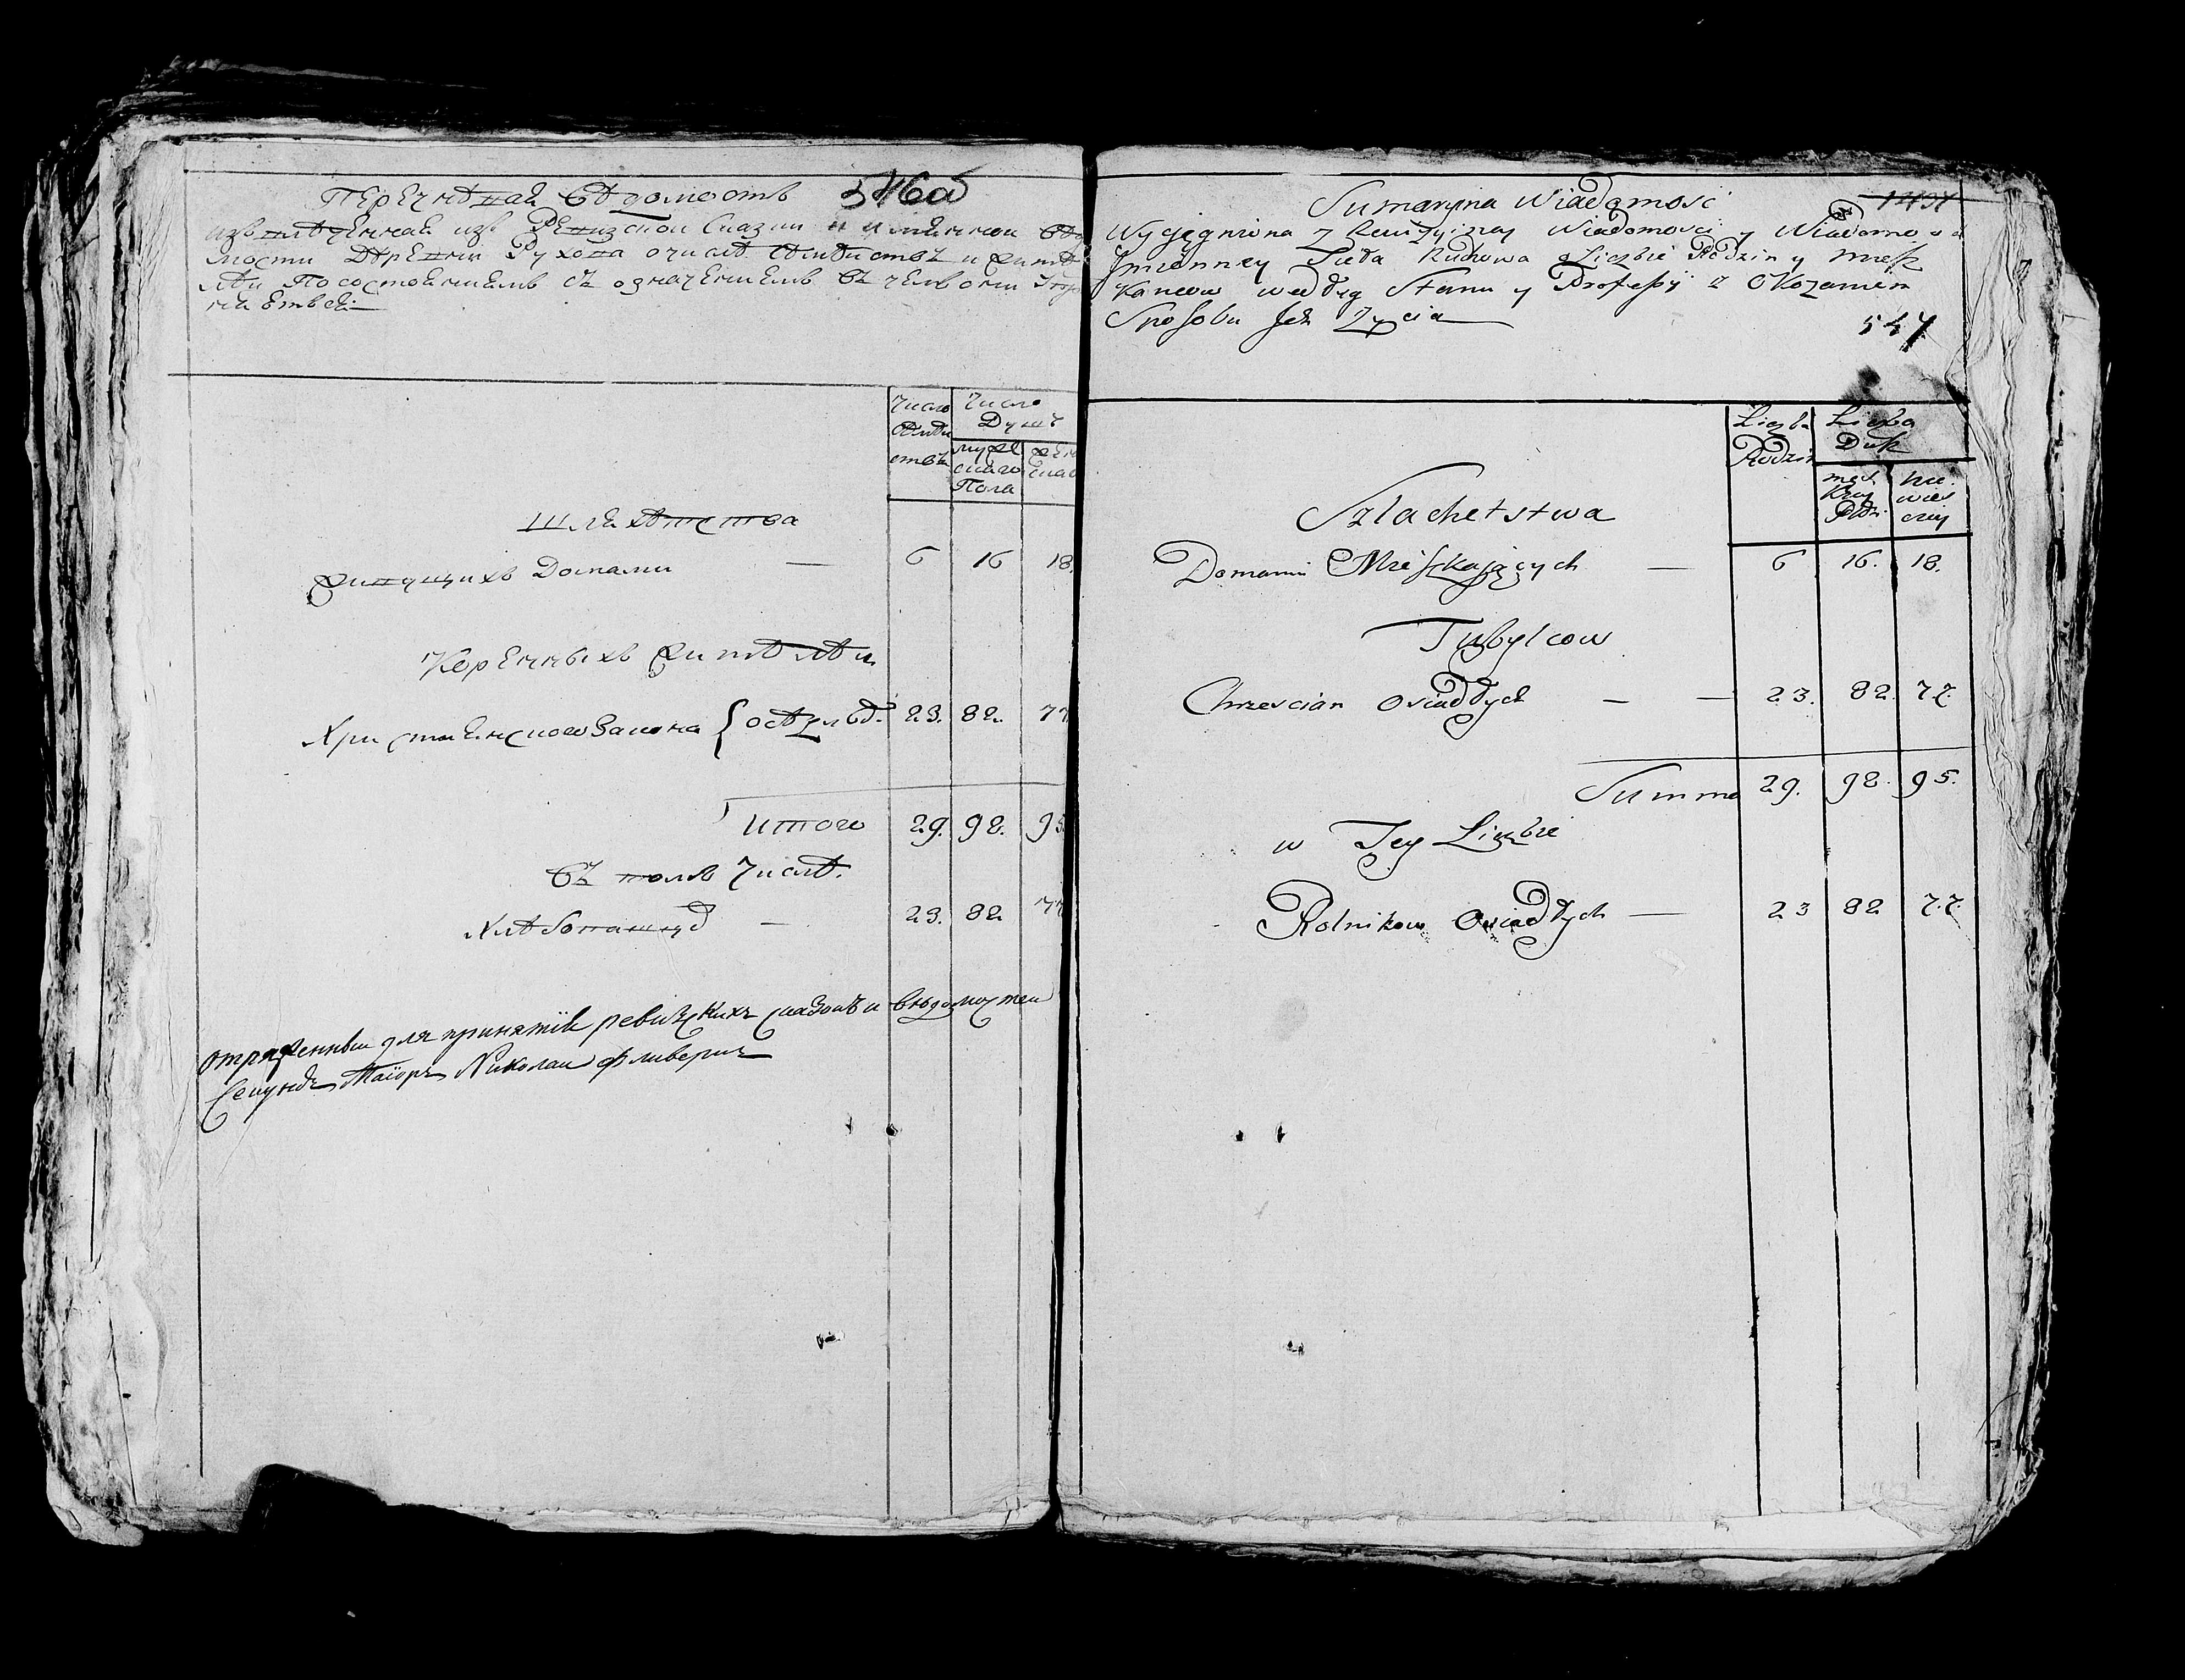 Перечневая Ведомость 546об
извлеченная изъ Ревизской Сказки и имянной Ведо
мости Деревни Рухова о числе семействъ и жите
лей По состояниямъ съ означениемъ въ чемъ они Упра
жняются
Число
семей
ствъ
Число
Душъ
мужес
скаго
Пола
женс
скаго
Шляхетства
живущихъ Домами — 6 16 18.
Коренныхъ жителей
Християнскаго Закона { оседлыхъ. 23. 82. 77
Итого 29. 98. 95
Въ томъ Числе.
Хлебопашцовъ — 23. 82 77
отряженный для принятия ревизскихъ сказокъ и ведомостей
Секундъ Маіоръ Николай Фливеринъ
Sumaryina Wiadomość
Wyciągniona z Rewizyiney Wiadomości y Wiadomości
Imienney Sioła Ruchowa o Liczbie Rodzin y miesz
kancow według Stanu y Professyi z Okazaniem
Sposobu Ich Zycia
547
Liczba
Rodzin
Liczba
Dusz
męs
kiey
Płci
nie
wies
ciey
Szlachetstwa
Domami Mieszkaiących — 6 16. 18.
Tubylcow
Chrzescian osiadłych — — 23. 82. 77.
Summa 29. 98. 95.
w Tey Liczbie
Rolnikow Osiadłych — 23 82 77.